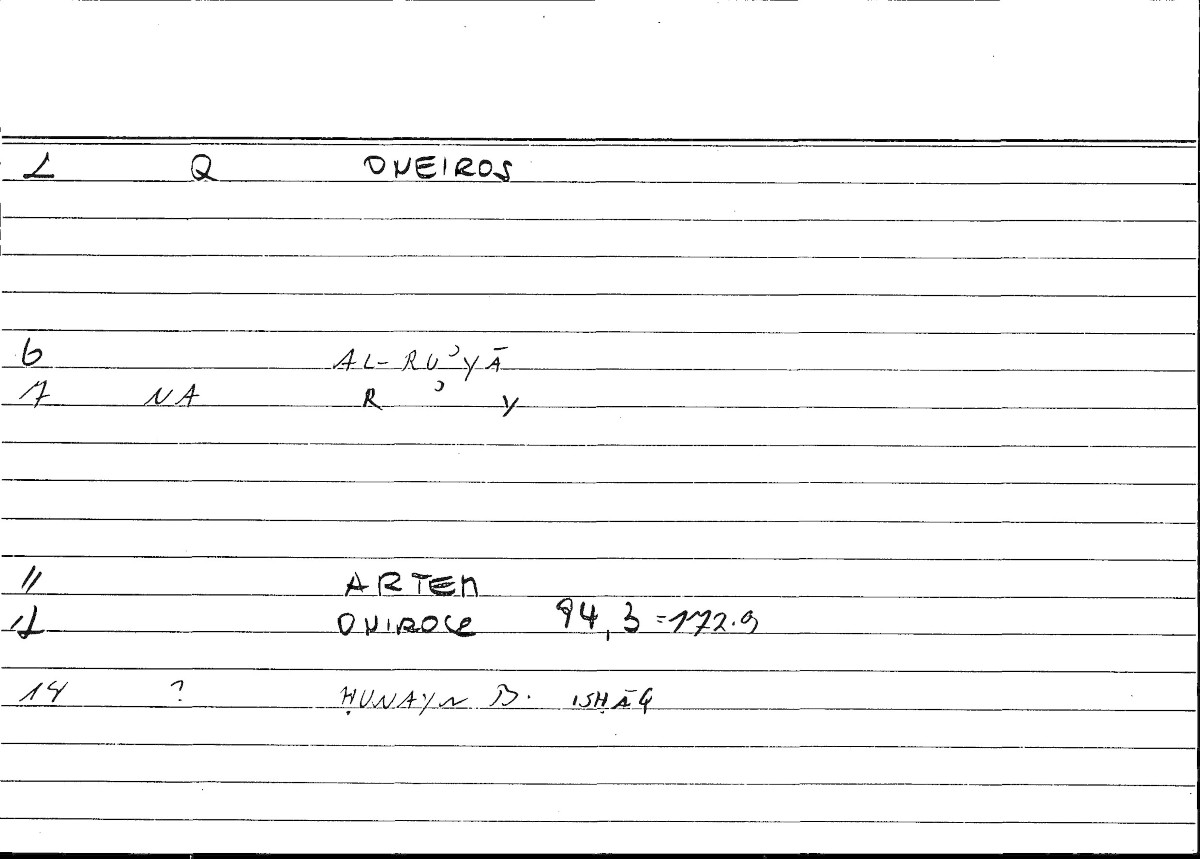 1 Q ONEIROS
6 AL-RUʾYĀ
7 NA R ʾ Y
11 ARTEM
12 ONIROCR 94,3=172.9
14 ? ḤUNAYN B. ISḤĀQ